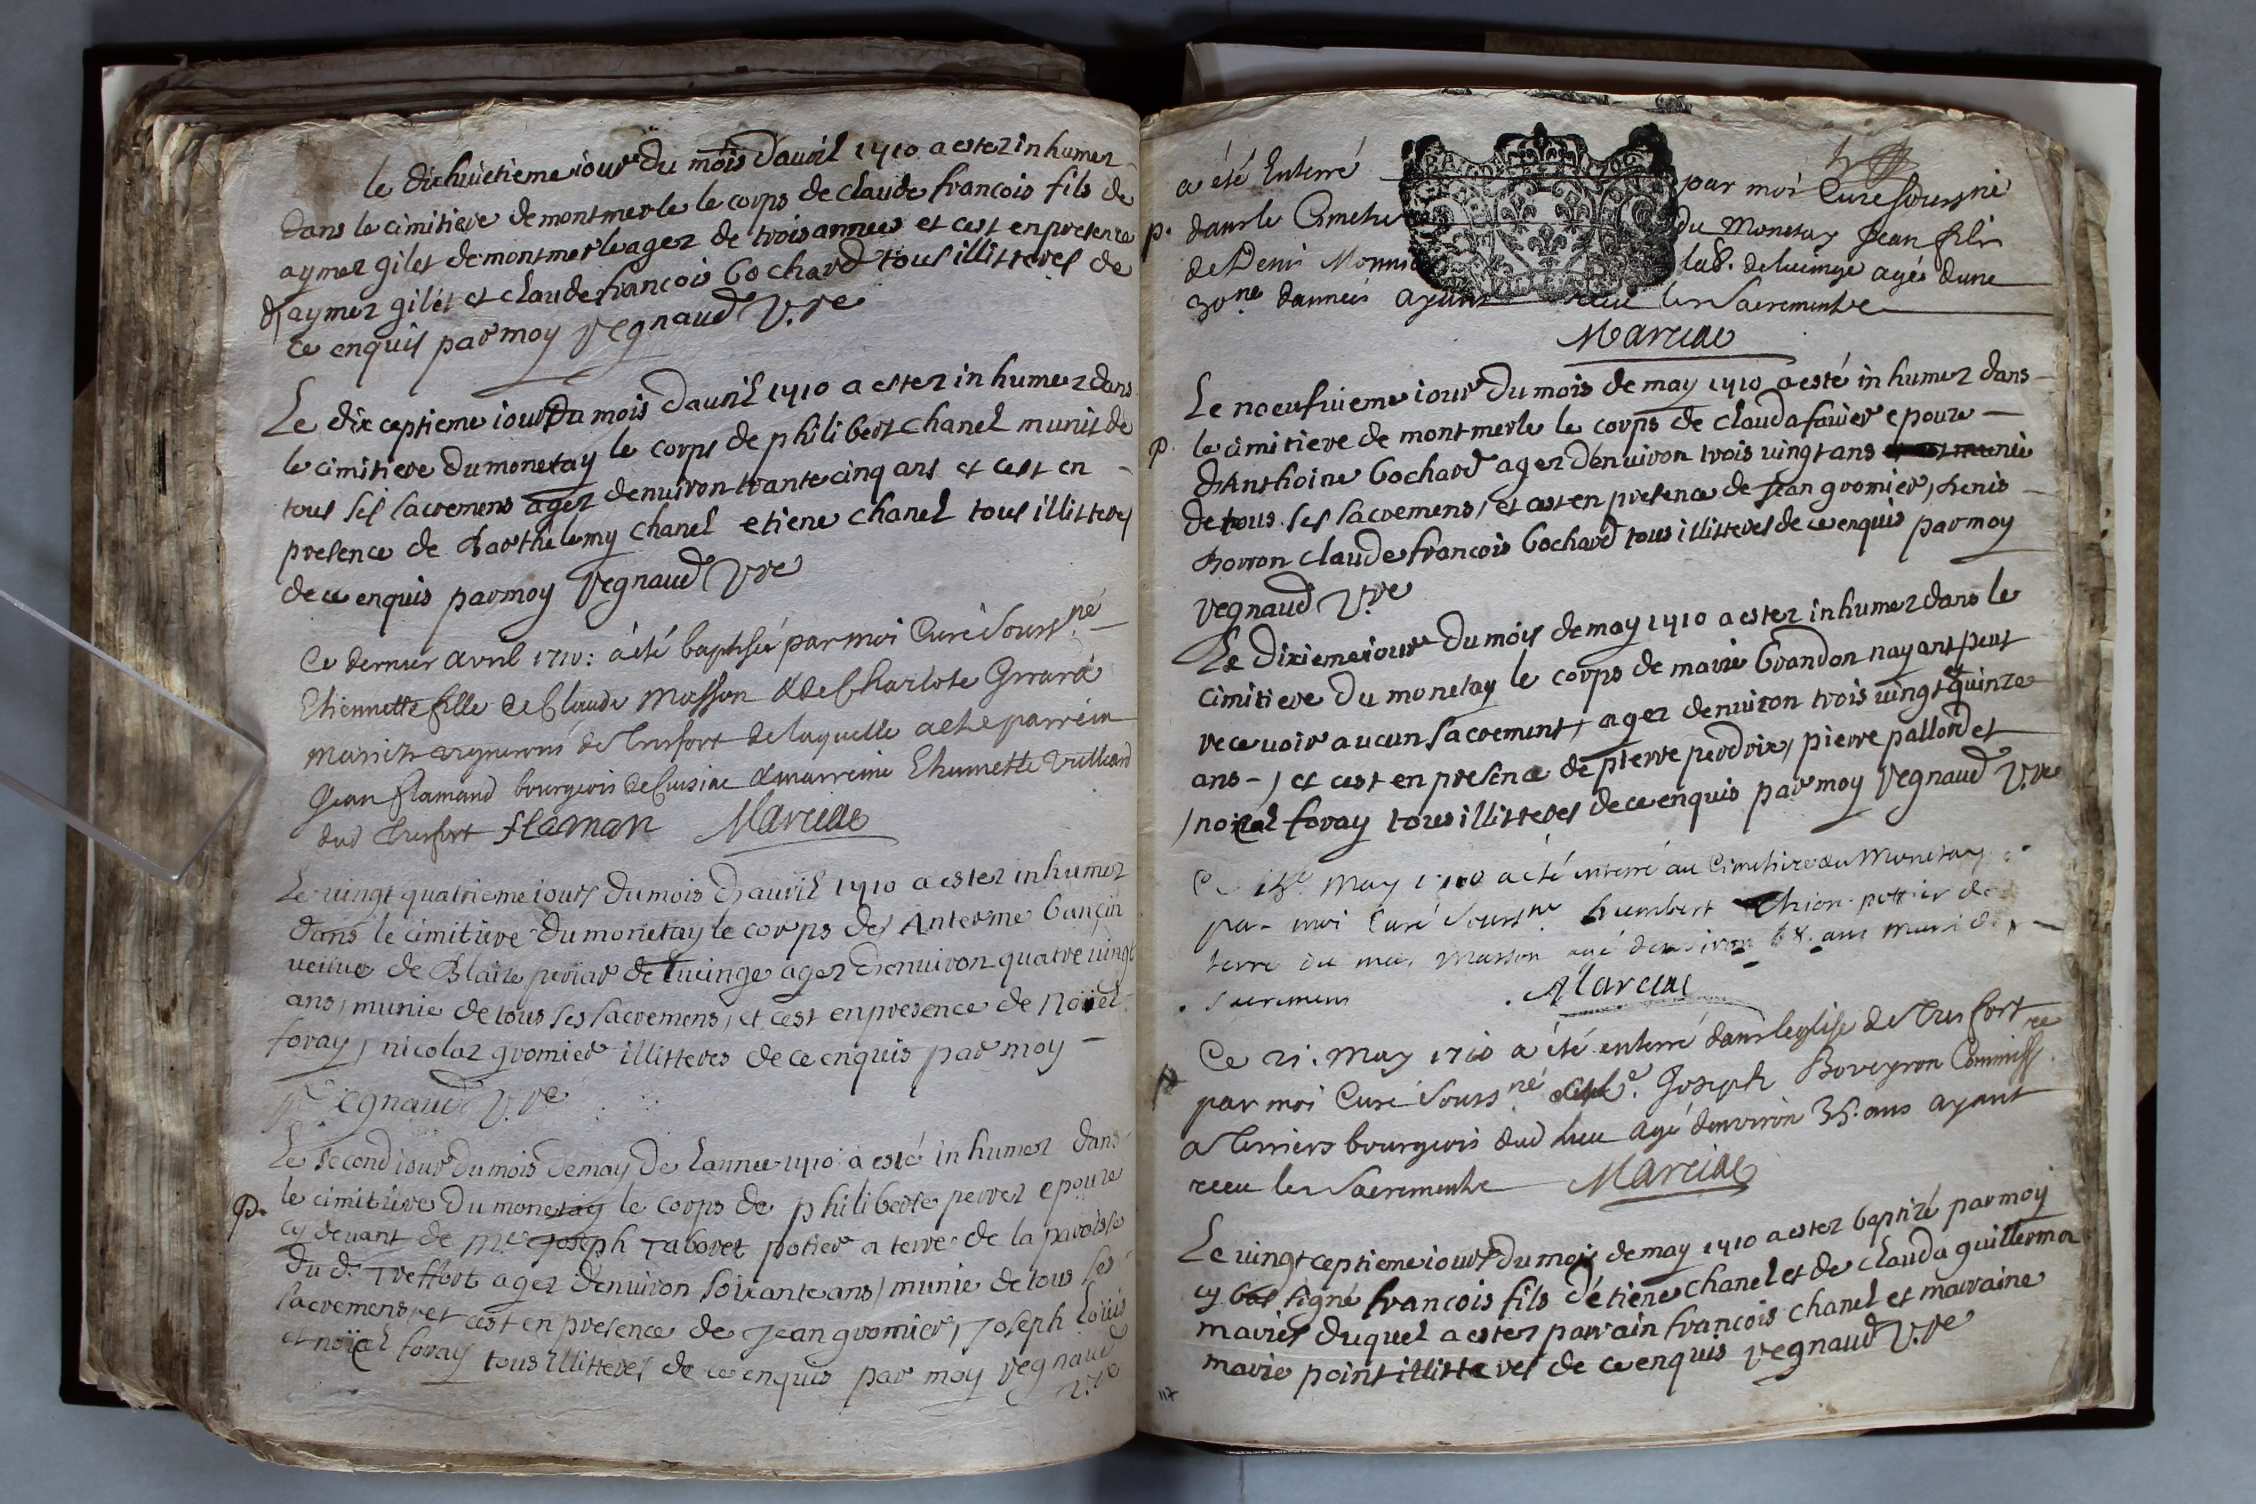 le dixhuictieme iour du mois dauvil 1710 a ester inhumer
dans le cimitiere de montmerle le corps de claude francois fils de
aymer gilet de montmerle ager de trois annees et cest en presence
daymer gilet et claude francois bochard tous illitteres de
ce enquis par moy vegnaud V.re
Le dix ceptieme iour du mois dauril 1710 a ester in humer dans
le cimitiere du monetay le corps de philibert chanel munis de
tous ses sacremens ager denuiron trante cinq ans et cest en
presence de Barthelemy chanel etiene chanel tous illitteres
de ce enquis par moy vegnaud Vre
Ce dernier avril 1710: a été baptisée par moi Curé souss.né
Etiennette fille de Claude Masson & de Charlote Girard
mariés vignerons de Treffort de laquelle a eté parrein
Jean flamand bourgeois de Cuisiac & marreine Etiennette
dud Treffort flaman Marciac
Le vingt quatrieme iour du mois dauril 1710 a ester inhumer
dans le cimitiere du monetay le corps de Anterme
veuue de Blaize periar de lucinge ager denuiron quatre vingt
ans, munie de tous ses sacremens, et cest en presence de Noüel
foray, nicolaz gromier illitteres de ce enquis par moy
vegnaud V.re
Le second iour du mois de may de lannee 1710 a esté in humer dans
P. le cimitiere du monetay le corps de philiberte perrez epouze
cy devant de Mre Joseph Taboret potier a terre de la paroisse
du d. Treffort ager denuiron soixante ans, munie de tous ses
sacremens, et cest en presence de Jean gromier, Joseph Loüis
et noüel foray tous illitteres de ce enquis par moy vegnaud
V.re
a été Enterré par moi Curé soussné
p. dans le Cimetie du Monetay Jean fils
de Denis Monni lab. de lucinge agé dune
30.ne dannées ayant receu les Sacrements
Marciac
Le noeufuieme iour du mois de may 1710 a esté in humer dans
p. le cimitiere de montmerle le corps de clauda favier epouze
dAnthoine bochard ager denuiron trois vingt ans munie
de tous ses sacremens, et cest en presence de Jean gromier, denis
claude francois bochard tous illitteres de ce enquis par moy
vegnaud V.re
Le dixieme iour du mois de may 1710 a ester inhumer dans le
cimitiere du monetay le corps de marie brandon nayant peut
recevoir aucun sacrement, ager denuiron trois vingt quinze
ans, et cest en presence de pierre perdrix, pierre pallord et
noüel foray tous illitteres de ce enquis par moy vegnaud V.re
Ce may 1710 a été enterré au Cimetiere du Monetay
par moi Curé soussné humbert pottier de
terre du Masson agé denviron 68. ans muni de
sacremens Marciac
Ce 21. May 1710 a été enterré dans leglise de Treffort
par moi Curé souss.né Joseph Boveyron Commiss.re
a Terriers bourgeois dud lieu agé denviron 35. ans ayant
receu les Sacrements Marciac
Le vingt ceptieme iour du mois de may 1710 a ester baptizé par moy
cy bas signé francois fils détiene chanel et de clauda guillermoz
mariés duquel a ester parrain francois chanel et marraine
marie point illitteres de ce enquis vegnaud V.re
117